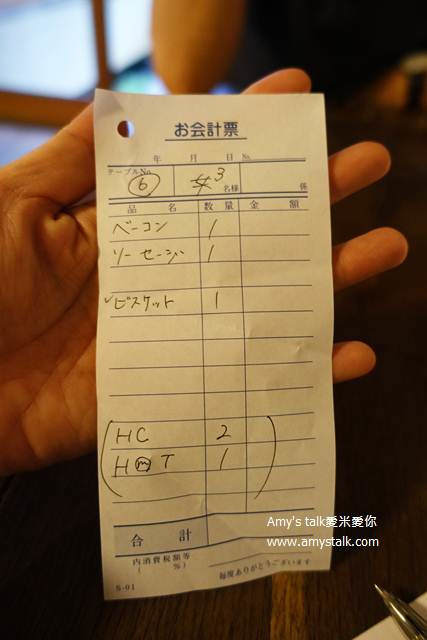 お会計票
年 月 日 No.
テーブルNo. 6 女3 名様 係
品 名 数 量 金 額
ベーコン 1
ソーセージ 1
✓ビスケット 1
(HC 2
HⓜT 1)
合 計
内消費税額等
( %)
毎度ありがとうございます
S-01
Amy's talk愛米愛你
www.amystalk.com